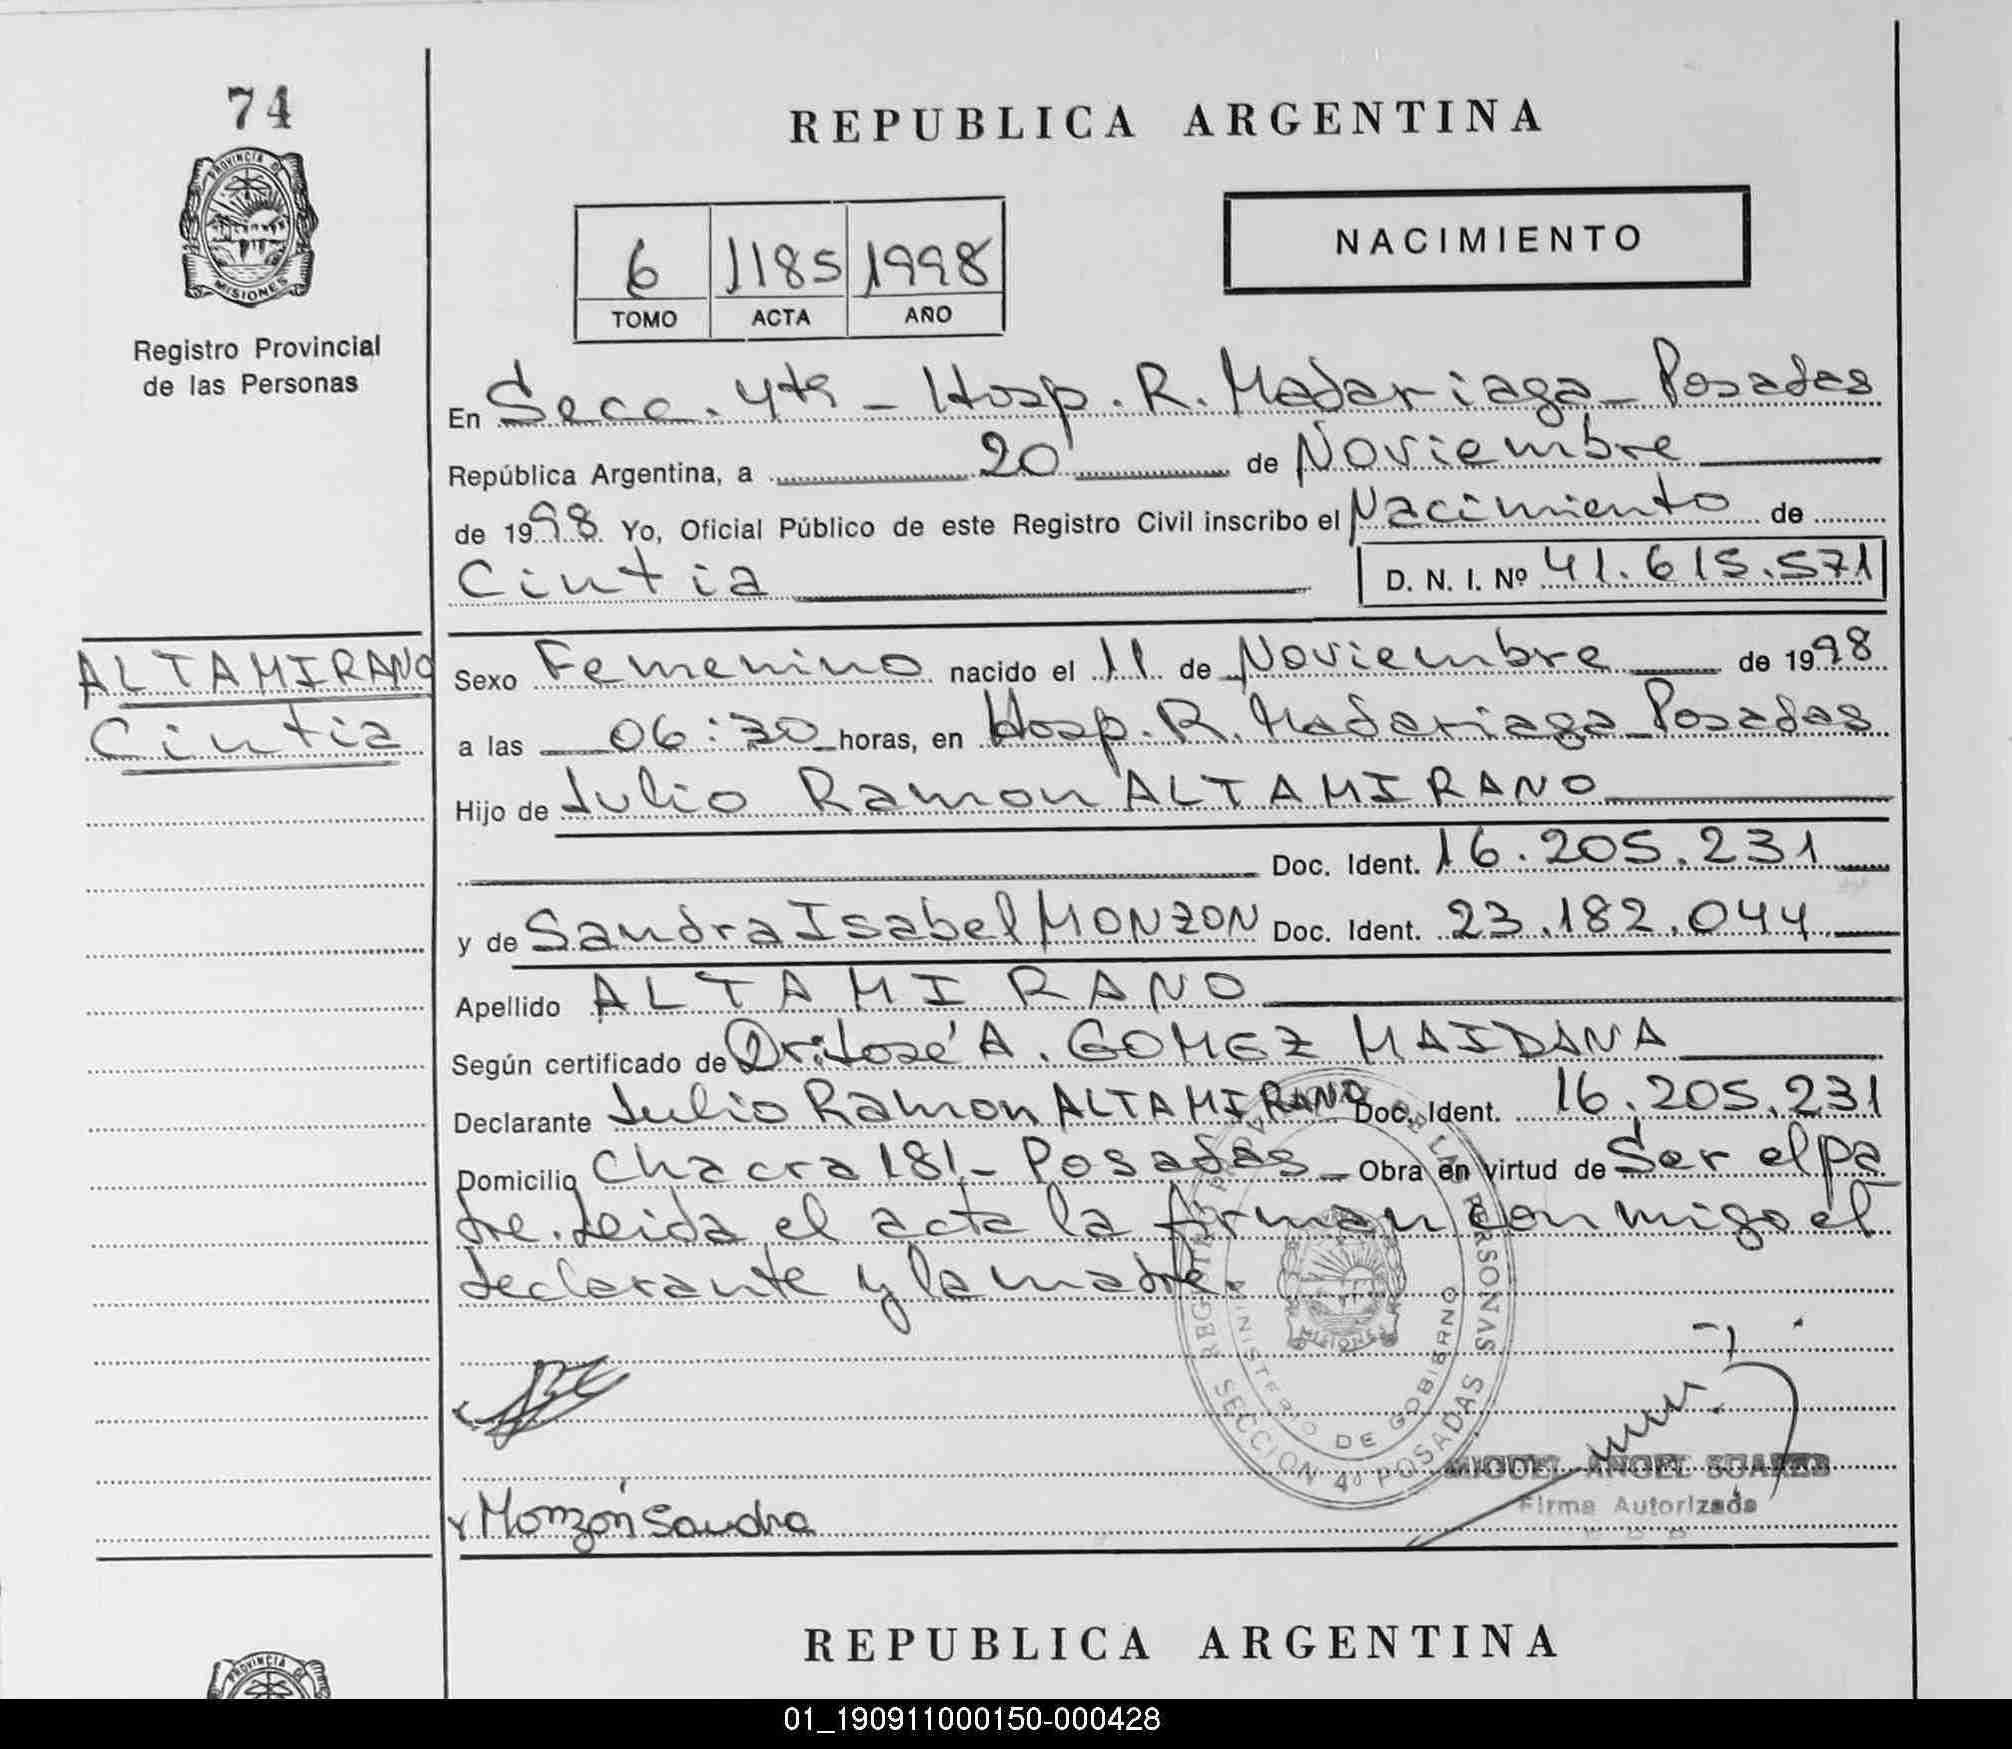 74
REPUBLICA ARGENTINA
PROVINCIA DE
MISIONES
Registro Provincial
de las Personas
6 1185 1998
TOMO ACTA AÑO
NACIMIENTO
En Secc. 4ta - Hosp. R. Madariaga - Posadas
República Argentina, a 20 de Noviembre
de 1998 Yo, Oficial Público de este Registro Civil inscribo el Nacimiento de
Cintia D. N. I. Nº 41.615.571
ALTAMIRANO
Cintia
Sexo Femenino nacido el 11 de Noviembre de 1998
a las 06:30 horas, en Hosp. R. Madariaga - Posadas
Hijo de Julio Ramon ALTAMIRANO
Doc. Ident. 16.205.231
y de Sandra Isabel MONZON Doc. Ident. 23.182.044
Apellido ALTAMIRANO
Según certificado de Dr. José A. GOMEZ MAIDANA
Declarante Julio Ramon ALTAMIRANO Doc. Ident. 16.205.231
Domicilio Chacra 181 - Posadas - Obra en virtud de Ser el pa
dre. Leida el acta la firman conmigo el
declarante y la madre.
REGISTRO PROVINCIAL DE LAS PERSONAS
MINISTERIO DE GOBIERNO
MISIONES
SECCION 4º POSADAS
MIGUEL ANGEL SUAREZ
Firma Autorizada
x Monzón Sandra
REPUBLICA ARGENTINA
PROVINCIA DE
01_190911000150-000428